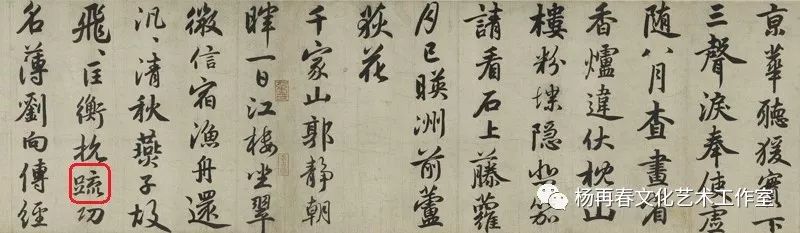 京華聽猨實下
三聲淚奉使虛
随八月查畫省
香爐違伏枕山
樓粉堞隐悲笳
請看石上藤蘿
月已暎洲前蘆
荻花
千家山郭靜朝
暉一日江樓坐翠
微信宿漁舟還
汎〻清秋燕子故
飛〻匡衡抗疏功
名薄劉向傳經
杨再春文化艺术工作室